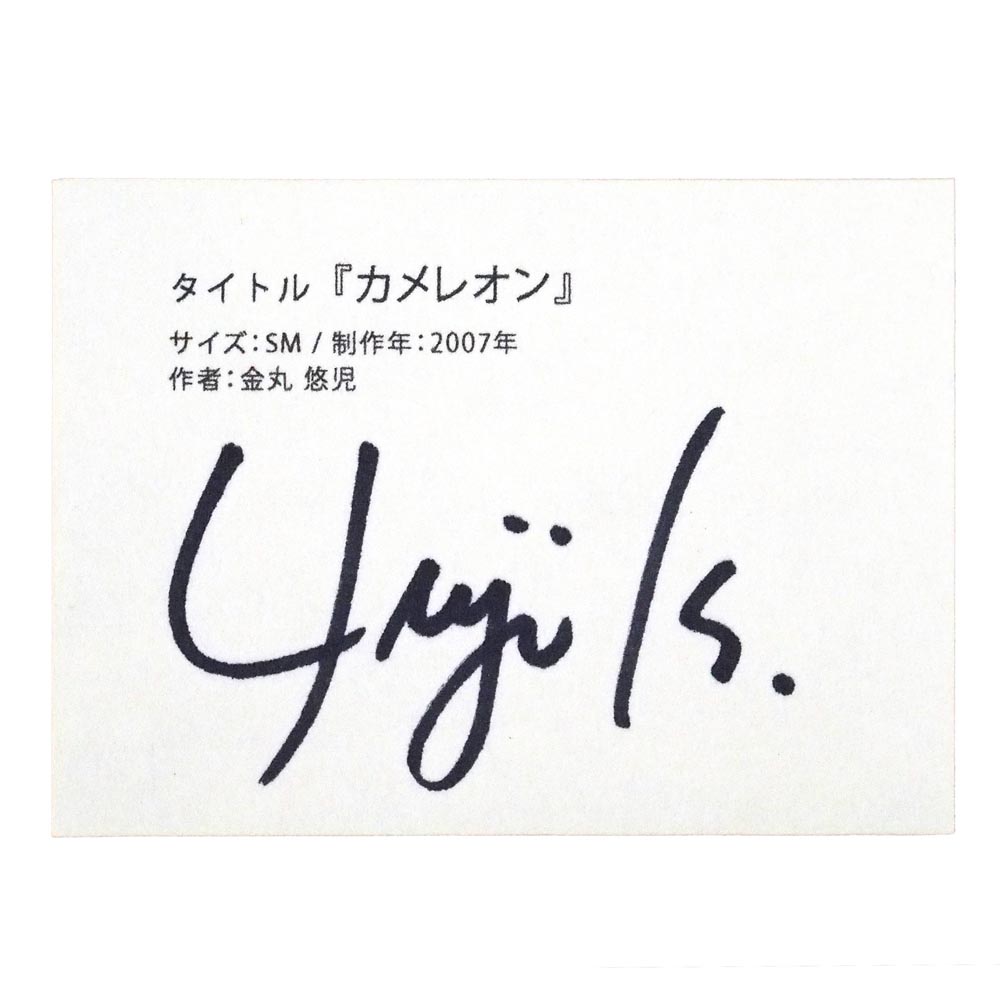 タイトル『カメレオン』
サイズ：SM / 制作年：2007年
作者：金丸 悠児
Yuji K.